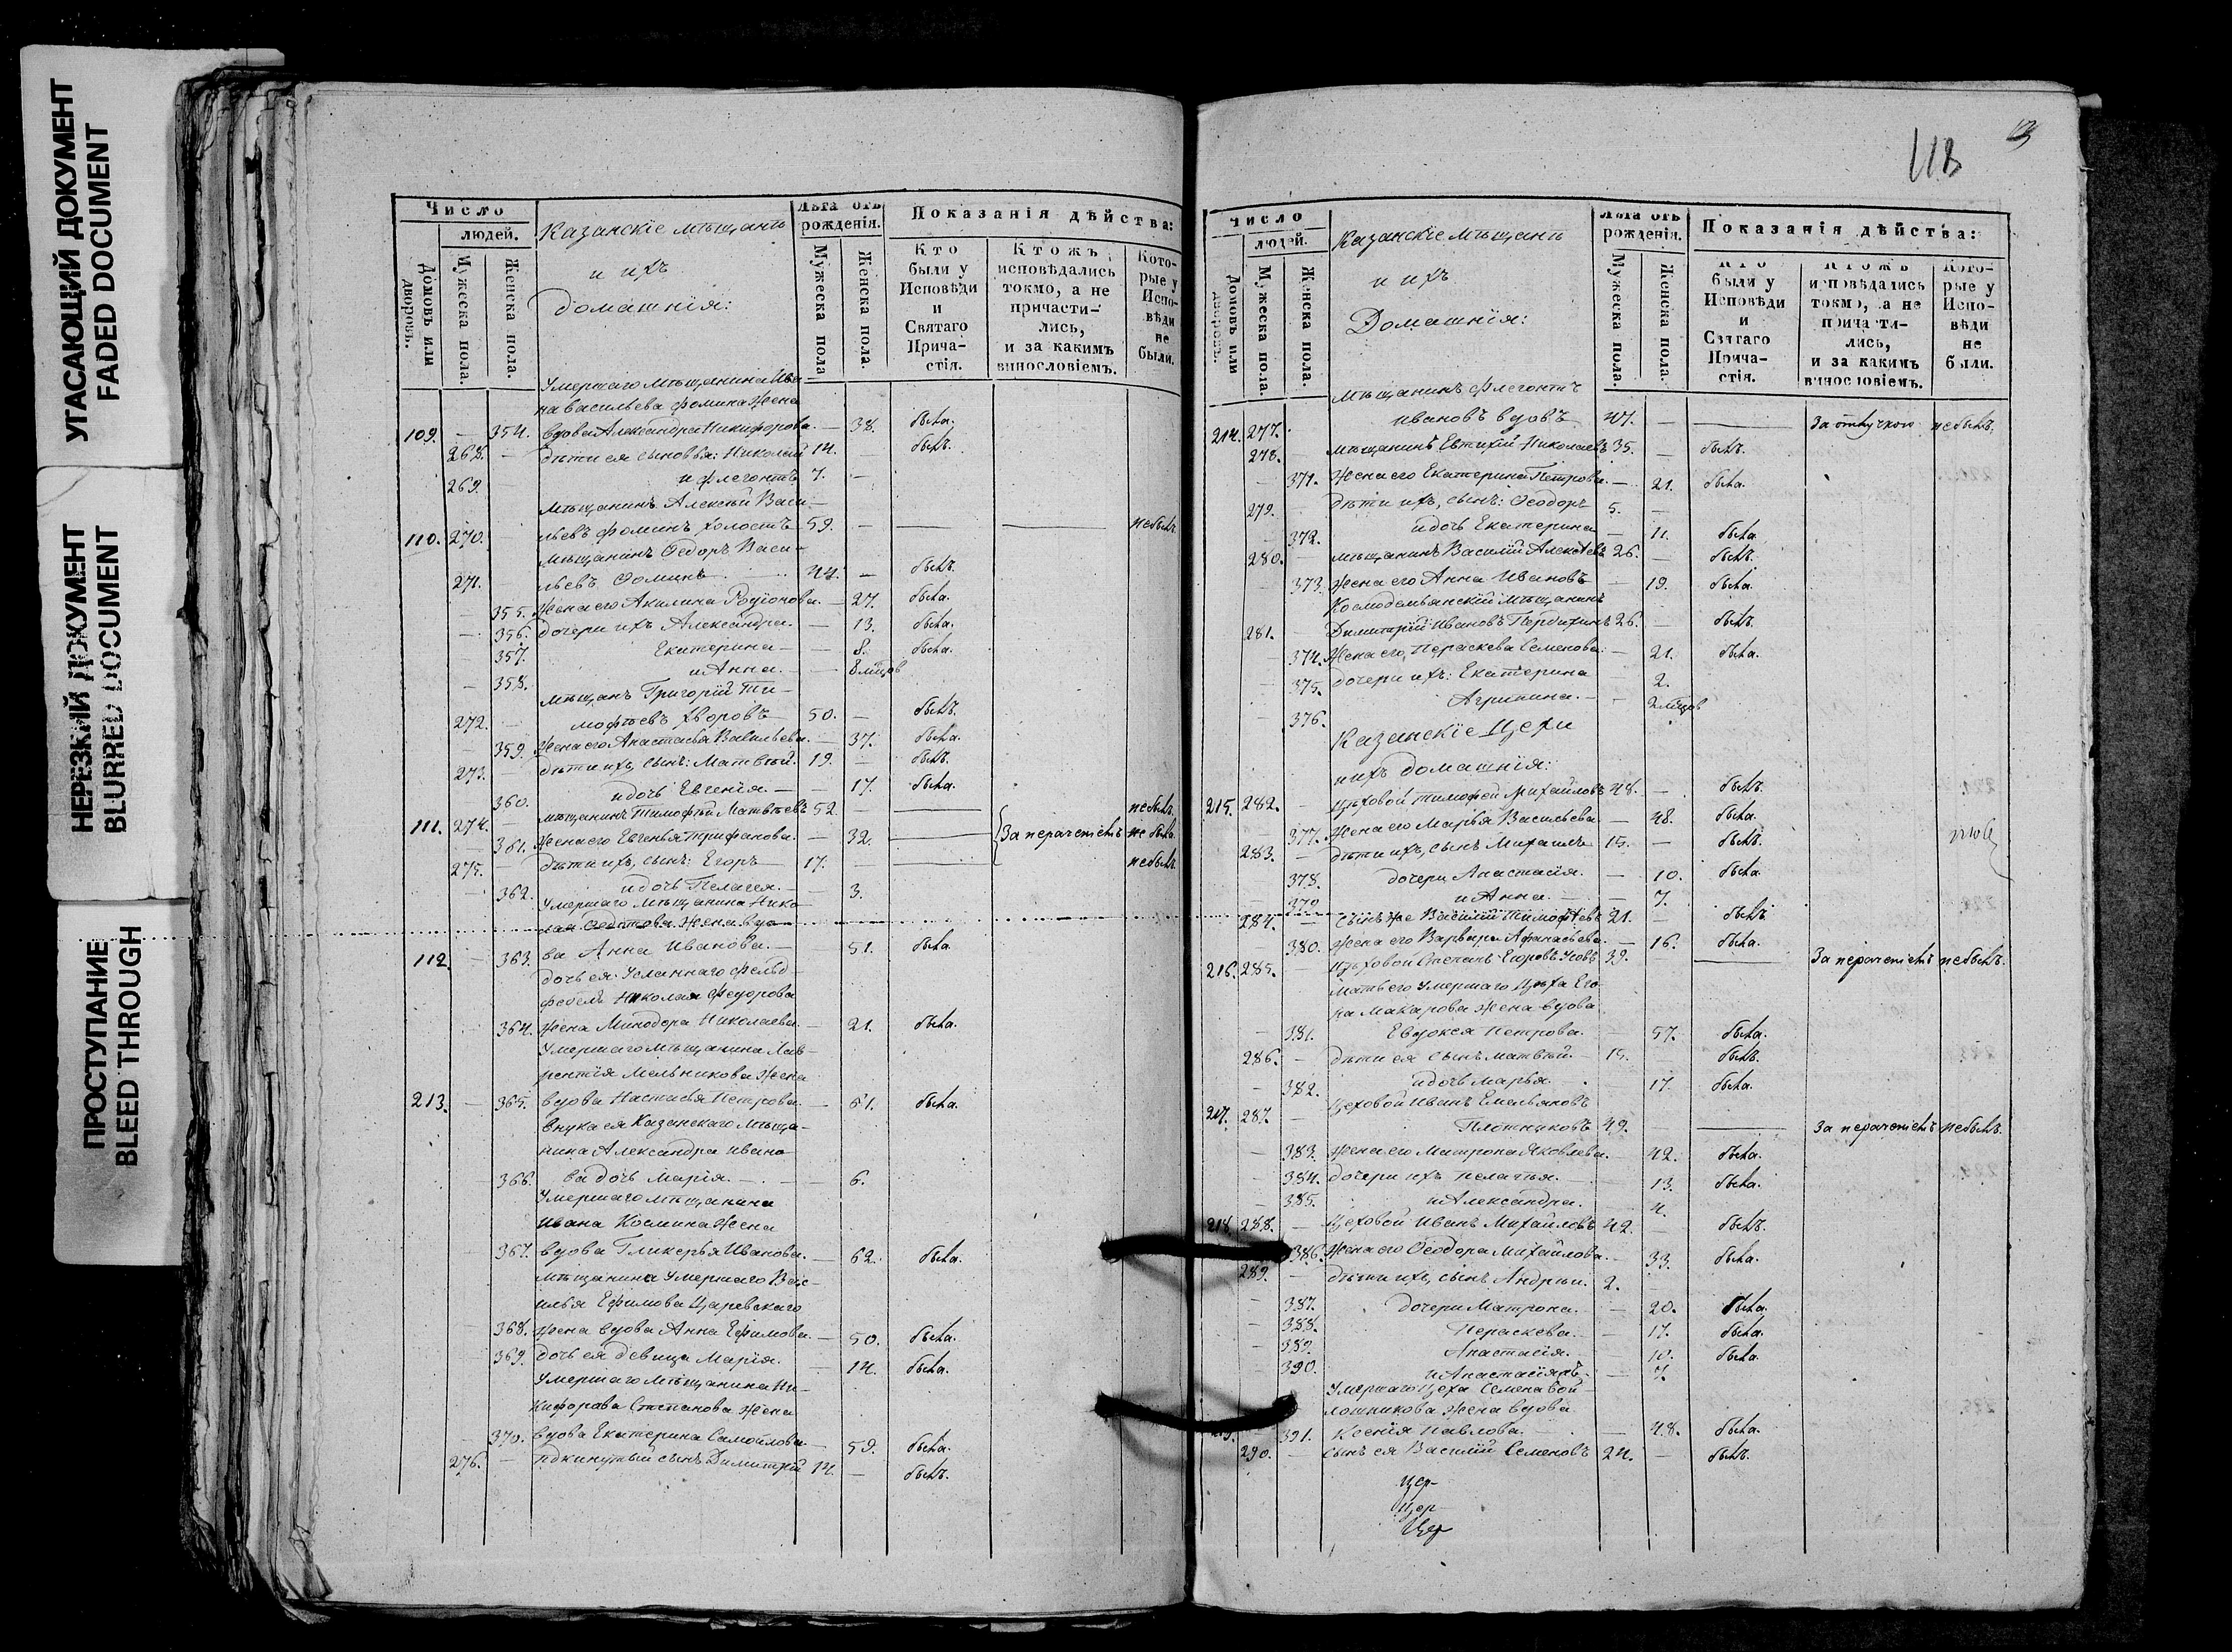 УГАСАЮЩИЙ ДОКУМЕНТ
FADED DOCUMENT
НЕРЕЗКИЙ ДОКУМЕНТ
BLURRED DOCUMENT
ПРОСТУПАНИЕ
BLEED THROUGH
Число
людей.
Домовъ или дворовъ.
Мужеска пола.
Женска пола.
Казанскіе мѣщане
и ихъ
домашнія:
Лѣта отъ рожденія.
Мужеска пола
Женска пола.
Показанія дѣйства:
Кто были у Исповѣди и Святаго Причастія.
Ктожъ исповѣдались токмо, а не причастились, и за какимъ винословіемъ.
Которые у Исповѣди не были.
Умершаго мѣщанина Ива-
на Васильева Фомина жена
109. — 354. вдова Александра Никифорова. — 38. была.
268. — дѣти ея сыновья: Николай 14. — былъ.
269. и Флегонтъ 7. —
Мѣщанинъ Алексѣй Васи-
110. 270. льевъ Фоминъ холостъ 59. — небылъ
мѣщанинъ Ѳедоръ Васи-
271. льевъ Ѳоминъ 44. — былъ.
355. жена его Акилина Родіонова. — 27. была.
— 356. дочери ихъ Александра. — 13. была.
357. Екатерина — 8. была.
— 358. и Анна. — 8 мцов
мѣщанъ Григорій Ти-
272. — мофѣевъ Хворовъ 50. — былъ.
— 359. жена его Анастасья Васильева. — 37. была.
273. — дѣти ихъ, сынъ: Матвѣй. 19. — былъ.
360. и дочь Евгенія. — 17. была.
111. 274. — мѣщанинъ Тимофѣй Матвѣевъ 52. небылъ.
— 361. жена его Евгенья Трифанова. — 32. За нерачениемъ не была.
275. — дѣти ихъ, сынъ: Егоръ 17. небылъ.
— 362. и дочь Пелагея. — 3.
Умершаго мѣщанина Нико-
лая Федотова жена вдо-
112. — 363. ва Анна Иванова. — 51. была.
дочь ея Усланнаго фельд-
фебеля Николая Федорова
— 364. жена Минодора Николаева. — 21. была.
Умершаго мѣщанина Лав-
рентія Мельникова жена
213. — 365. вдова Настасья Петрова. — 61. была.
внука ея Казанскаго мѣща-
нина Александра Ивано-
— 366. ва дочь Марія. — 6.
Умершаго мѣщанина
Ивана Космина жена
— 367. вдова Гликерья Иванова. — 62. была.
Мѣщанина Умершаго Вас-
илья Ефимова Царевскаго
— 368. жена вдова Анна Ефимова. — 50. была.
369. дочь ея девица Марія. — 14. была.
Умершаго мѣщанина Ни-
кифорова Степанова жена
— 370. вдова Екатерина Самойлова. — 59. была.
276. — подкинутый сынъ Димитрій 14. — былъ.
118
Число
людей.
Домовъ или дворовъ.
Мужеска пола.
Женска пола.
Казанскіе мѣщане
и ихъ
Домашнія:
Лѣта отъ рожденія.
Мужеска пола.
Женска пола.
Показанія дѣйства:
Кто были у Исповѣди и Святаго Причастія.
Ктожъ исповѣдались токмо, а не причастились, и за какимъ винословіемъ.
Которые у Исповѣди не были.
мѣщанинъ Флегонтъ
214. 277. Ивановъ вдовъ 47. — За отлучкою небылъ.
278. мѣщанинъ Евтихій Николаевъ 35. — былъ.
— 371. жена его Екатерина Петрова. — 21. была.
279. дѣти ихъ, сынъ: Ѳеодоръ 5. —
— 372. и дочь Екатерина — 11. была.
280. мѣщанинъ Василій Алексѣевъ 26. — былъ.
373. жена его Анна Ивановъ — 19. была.
Космодемьянскій мѣщанинъ
281. — Димитрій Ивановъ 26. — былъ.
— 374. жена его, Пераскева Семенова: — 21. была.
— 375. дочери ихъ: Екатерина — 2.
— 376. Агрипина. — 2 мцов
Казанскіе Цехи
и ихъ домашнія:
215. 282. — Цѣховой Тимофей Михайловъ 48. — былъ.
— 377. жена его Марья Васильева — 48. была.
283. — дѣти ихъ, сынъ Михаилъ 15. — былъ.
378. дочери, Анастасія. — 10. была.
379. и Анна. — 7.
284. — Сынъ же Василій Тимофѣевъ 21. — былъ
— 380. жена его Варвара Афанасьева. — 16. была.
216. 285. Цѣховой Степанъ Егоровъ 39. — За нерачениемъ небылъ.
Мать его Умершаго Цѣха Его-
ра Макарова жена вдова
— 381. Евдокея Петрова. 57. была.
286. — дѣти ея сынъ Матвѣй. 15. былъ.
— 382. и дочь Марья. 17. была.
Цеховой Иванъ Емельяновъ
217. 287. — Плотниковъ 49. За нерачениемъ небылъ.
— 383. жена его Матрона Яковлева. — 42. была.
— 384. дочери ихъ Пелагея. — 13. была.
— 385. и Александра. — 4.
218. 288. — Цеховой Иванъ Михайловъ 42. — былъ.
386. жена его Ѳеодора Михайлова. — 33. была.
289. — дѣти ихъ, сынъ Андрѣй. 2.
— 387. дочери Матрона. — 20. была.
— 388. Пераскева. — 17. была.
— 389. Анастасія. — 10. была.
— 390. — 7.
Умершаго Цеха Семена Вой-
лошникова жена вдова
391. Ксенія Павлова. — 48. была.
290. сынъ ея Василій Семеновъ 24. — былъ.
Цер-
Цер
Цер